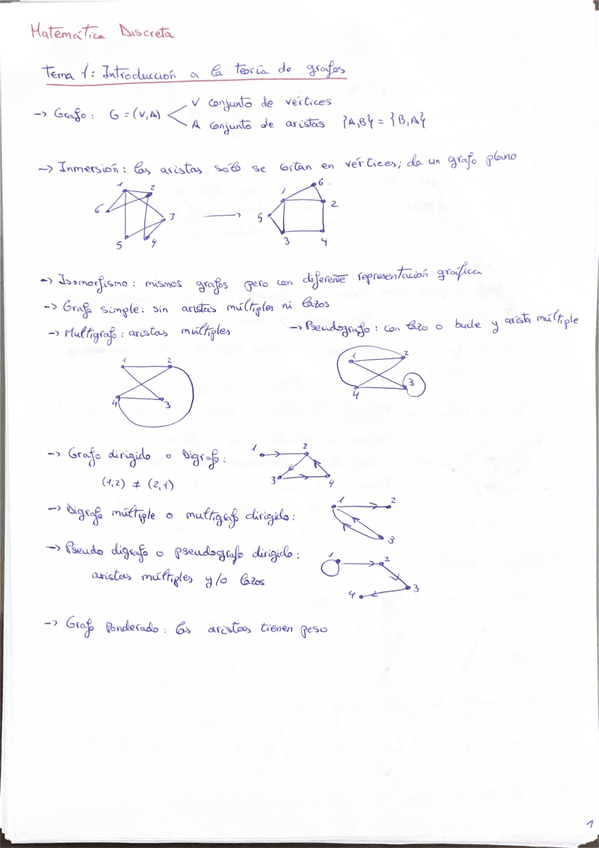 Matemática Discreta
Tema 1: Introducción a la teoría de grafos
-> Grafo: G = (V,A) V conjunto de vértices
A conjunto de aristas {A,B} = {B,A}
-> Inmersión: las aristas sólo se cortan en vértices; da un grafo plano
1 2 3 4 5 6
1 2 3 4 5 6
-> Isomorfismo: mismos grafos pero con diferente representación gráfica
-> Grafo simple: sin aristas múltiples ni lazos
-> Multigrafo: aristas múltiples -> Pseudografo: con lazo o bucle y arista múltiple
1 2 3 4
1 2 3 4
-> Grafo dirigido o Digrafo: 1 2 3 4
(1,2) ≠ (2,1)
-> Digrafo múltiple o multigrafo dirigido: 1 2 3
-> Pseudo digrafo o pseudografo dirigido: 1 2 3 4
aristas múltiples y/o lazos
-> Grafo Ponderado: las aristas tienen peso
1